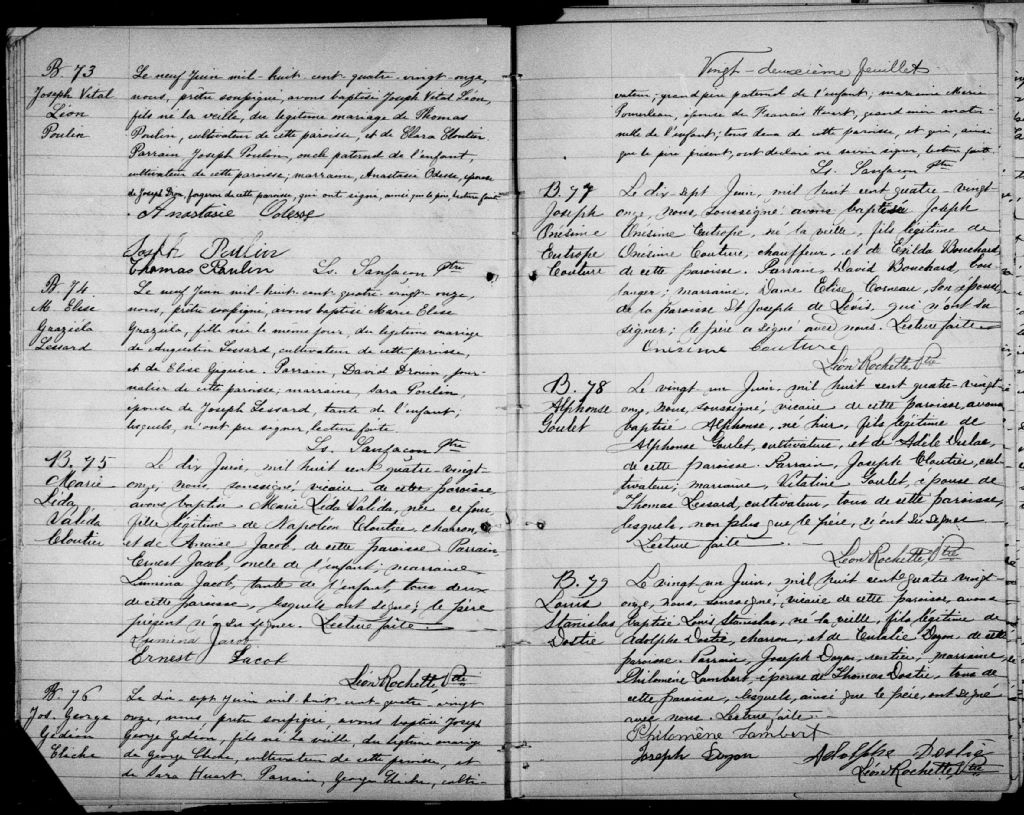 B 73
Joseph Vital
Léon
Poulin
Le neuf Juin mil-huit-cent-quatre-vingt-onze,
nous, prêtre soussigné, avons baptisé Joseph Vital Léon,
fils né la veille, du légitime mariage de Thomas
Poulin, cultivateur de cette paroisse, et de Clara Cloutier
Parrain Joseph Poulin, oncle paternel de l'enfant,
cultivateur de cette paroisse; marraine, Anastasie Odesse, épouse
de Joseph Doyon, de cette paroisse, qui ont signé, ainsi que le père, lecture faite.
Anastasie Odesse
Joseph Poulin
Thomas Poulin Ls. Sanfacon Ptre
B 74
M Elise
Graziela
Lessard
Le neuf Juin mil-huit-cent-quatre-vingt-onze,
nous, prêtre soussigné, avons baptisé Marie Elise
Graziela, fille née le même jour, du légitime mariage
de Augustin Lessard, cultivateur de cette paroisse,
et de Elise Giguère. Parrain, David Drouin, jour-
nalier de cette paroisse, marraine, Sara Poulin,
épouse de Joseph Lessard, tante de l'enfant;
lesquels, n'ont pu signer, lecture faite.
Ls. Sanfacon Ptre
B. 75
Marie
Lida
Valida
Cloutier
Le dix Juin, mil huit cent quatre vingt-
onze, nous soussigné, vicaire de cette paroisse
avons baptisé Marie Lida Valida, née ce jour
fille légitime de Napoléon Cloutier charron,
et de Anaïse Jacob, de cette paroisse Parrain,
Ernest Jacob, oncle de l'enfant; marraine
Lumina Jacob, tante de l'enfant, tous deux
de cette paroisse, lesquels ont signé; le père
présent n'a su signer. Lecture faite
Lumina Jacob
Ernest Jacob
Léon Rochette, Ptre
B 76
Jos. George
Gédéon
Cliche
Le dix-sept Juin mil-huit-cent-quatre-vingt
onze, nous prêtre soussigné, avons baptisé Joseph
George Gédéon, fils né la veille, du légitime mariage
de George Cliche, cultivateur de cette paroisse, et
de Sara Huart. Parrain, George Cliche, culti-
Vingt-deuxième feuillet
vateur, grand père paternel de l'enfant; marraine Marie
Pomerleau, épouse de Francis Huart, grand mère mater-
nelle de l'enfant; tous deux de cette paroisse, et qui, ainsi
que le père présent, ont déclaré ne savoir signer, lecture faite.
Ls. Sanfacon Ptre
B. 77
Joseph
Onésime
Eutrope
Couture
Le dix-sept Juin, mil huit cent quatre-vingt-
onze, nous, soussigné avons baptisé Joseph
Onésime Eutrope, né la veille, fils légitime de
Onésime Couture, chauffeur, et de Exilda Bouchard,
de cette paroisse. Parrain, David Bouchard, bou-
langer; marraine, Dame Elise Corneau, son épouse
de la paroisse St Joseph de Lévis, qui n'ont su
signer; le père a signé avec nous. Lecture faite
Onésime Couture
Léon Rochette, Ptre
B. 78
Alphonse
Goulet
Le vingt un Juin, mil huit cent quatre-vingt
onze, nous, soussigné, vicaire de cette paroisse, avons
baptisé Alphonse, né hier, fils légitime de
Alphonse Goulet, cultivateur, et de Adèle Dulac,
de cette paroisse. Parrain, Joseph Cloutier, cul-
tivateur; marraine, Goulet, épouse de
Thomas Lessard, cultivateur, tous de cette paroisse,
lesquels, non plus que le père, n'ont su signer
Lecture faite
Léon Rochette, Ptre
B. 79
Louis
Stanislas
Dostie
Le vingt un Juin, mil huit cent quatre vingt-
onze, nous, soussigné, vicaire de cette paroisse, avons
baptisé Louis Stanislas, né la veille, fils légitime de
Adolphe Dostie, charron, et de Eulalie Doyon de cette
paroisse. Parrain, Joseph Doyon, rentier, marraine
Philomène Lambert, épouse de Thomas Dostie, tous de
cette paroisse, lesquels, ainsi que le père, ont signé
avec nous. Lecture faite
Philomène Lambert
Joseph Doyon Adolphe Dostie
Léon Rochette, Ptre